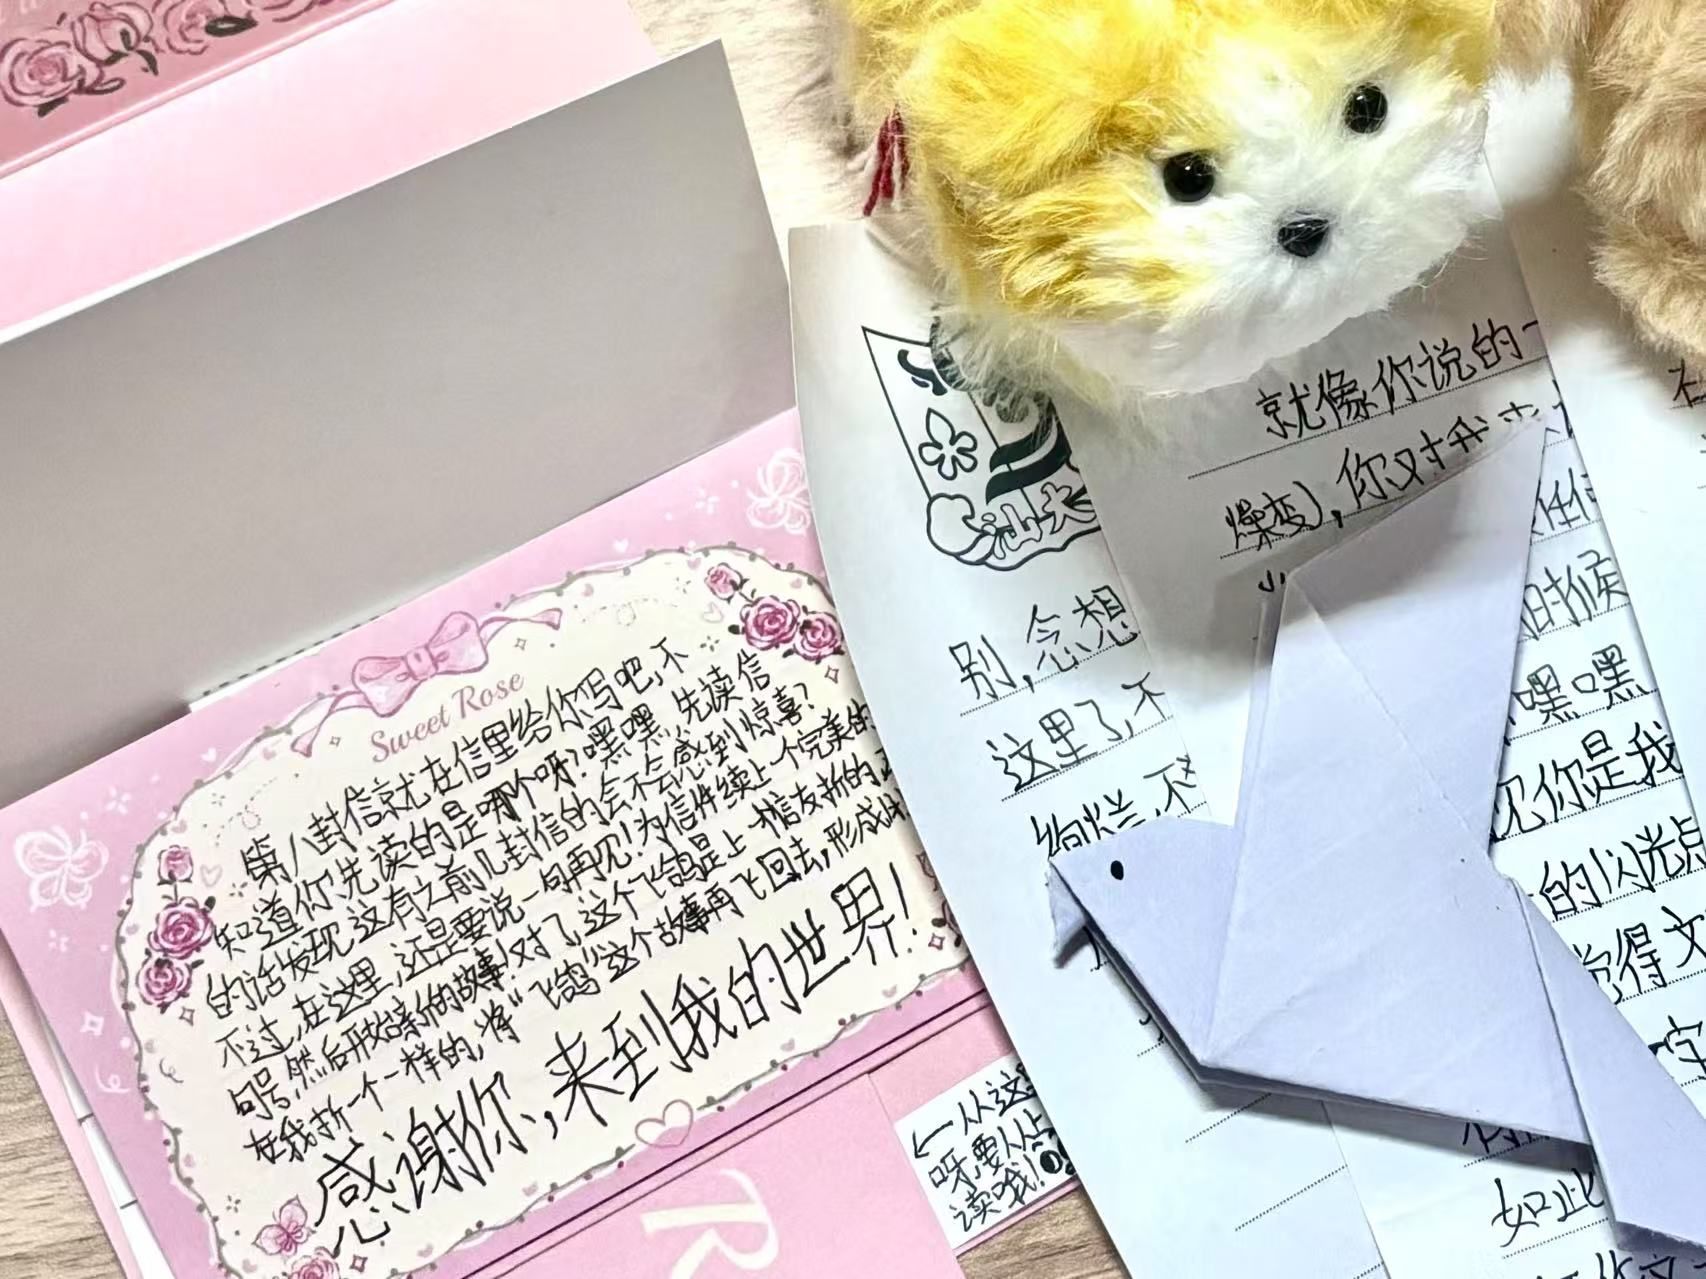 Sweet Rose
第八封信就在信里给你写吧,不
知道你先读的是哪个呀?嘿嘿,先读信
的话发现这有之前几封信的会不会感到惊喜?
不过,在这里,还是要说一句再见!为信件续上一个完美的
句号,然后开始新的故事!对了,这个飞鸽是上一个信友折的,
在我折一个一样的,将“飞鸽”这个故事再飞回去,形成
感谢你,来到我的世界!
←从这
呀,要从上
读哦!
汕大
别,念想
这里了,不
绚烂,不
就像你说的一
燥变),你对我
任何
时候
嘿嘿
你是我
的闪光点
觉得文
字
如此